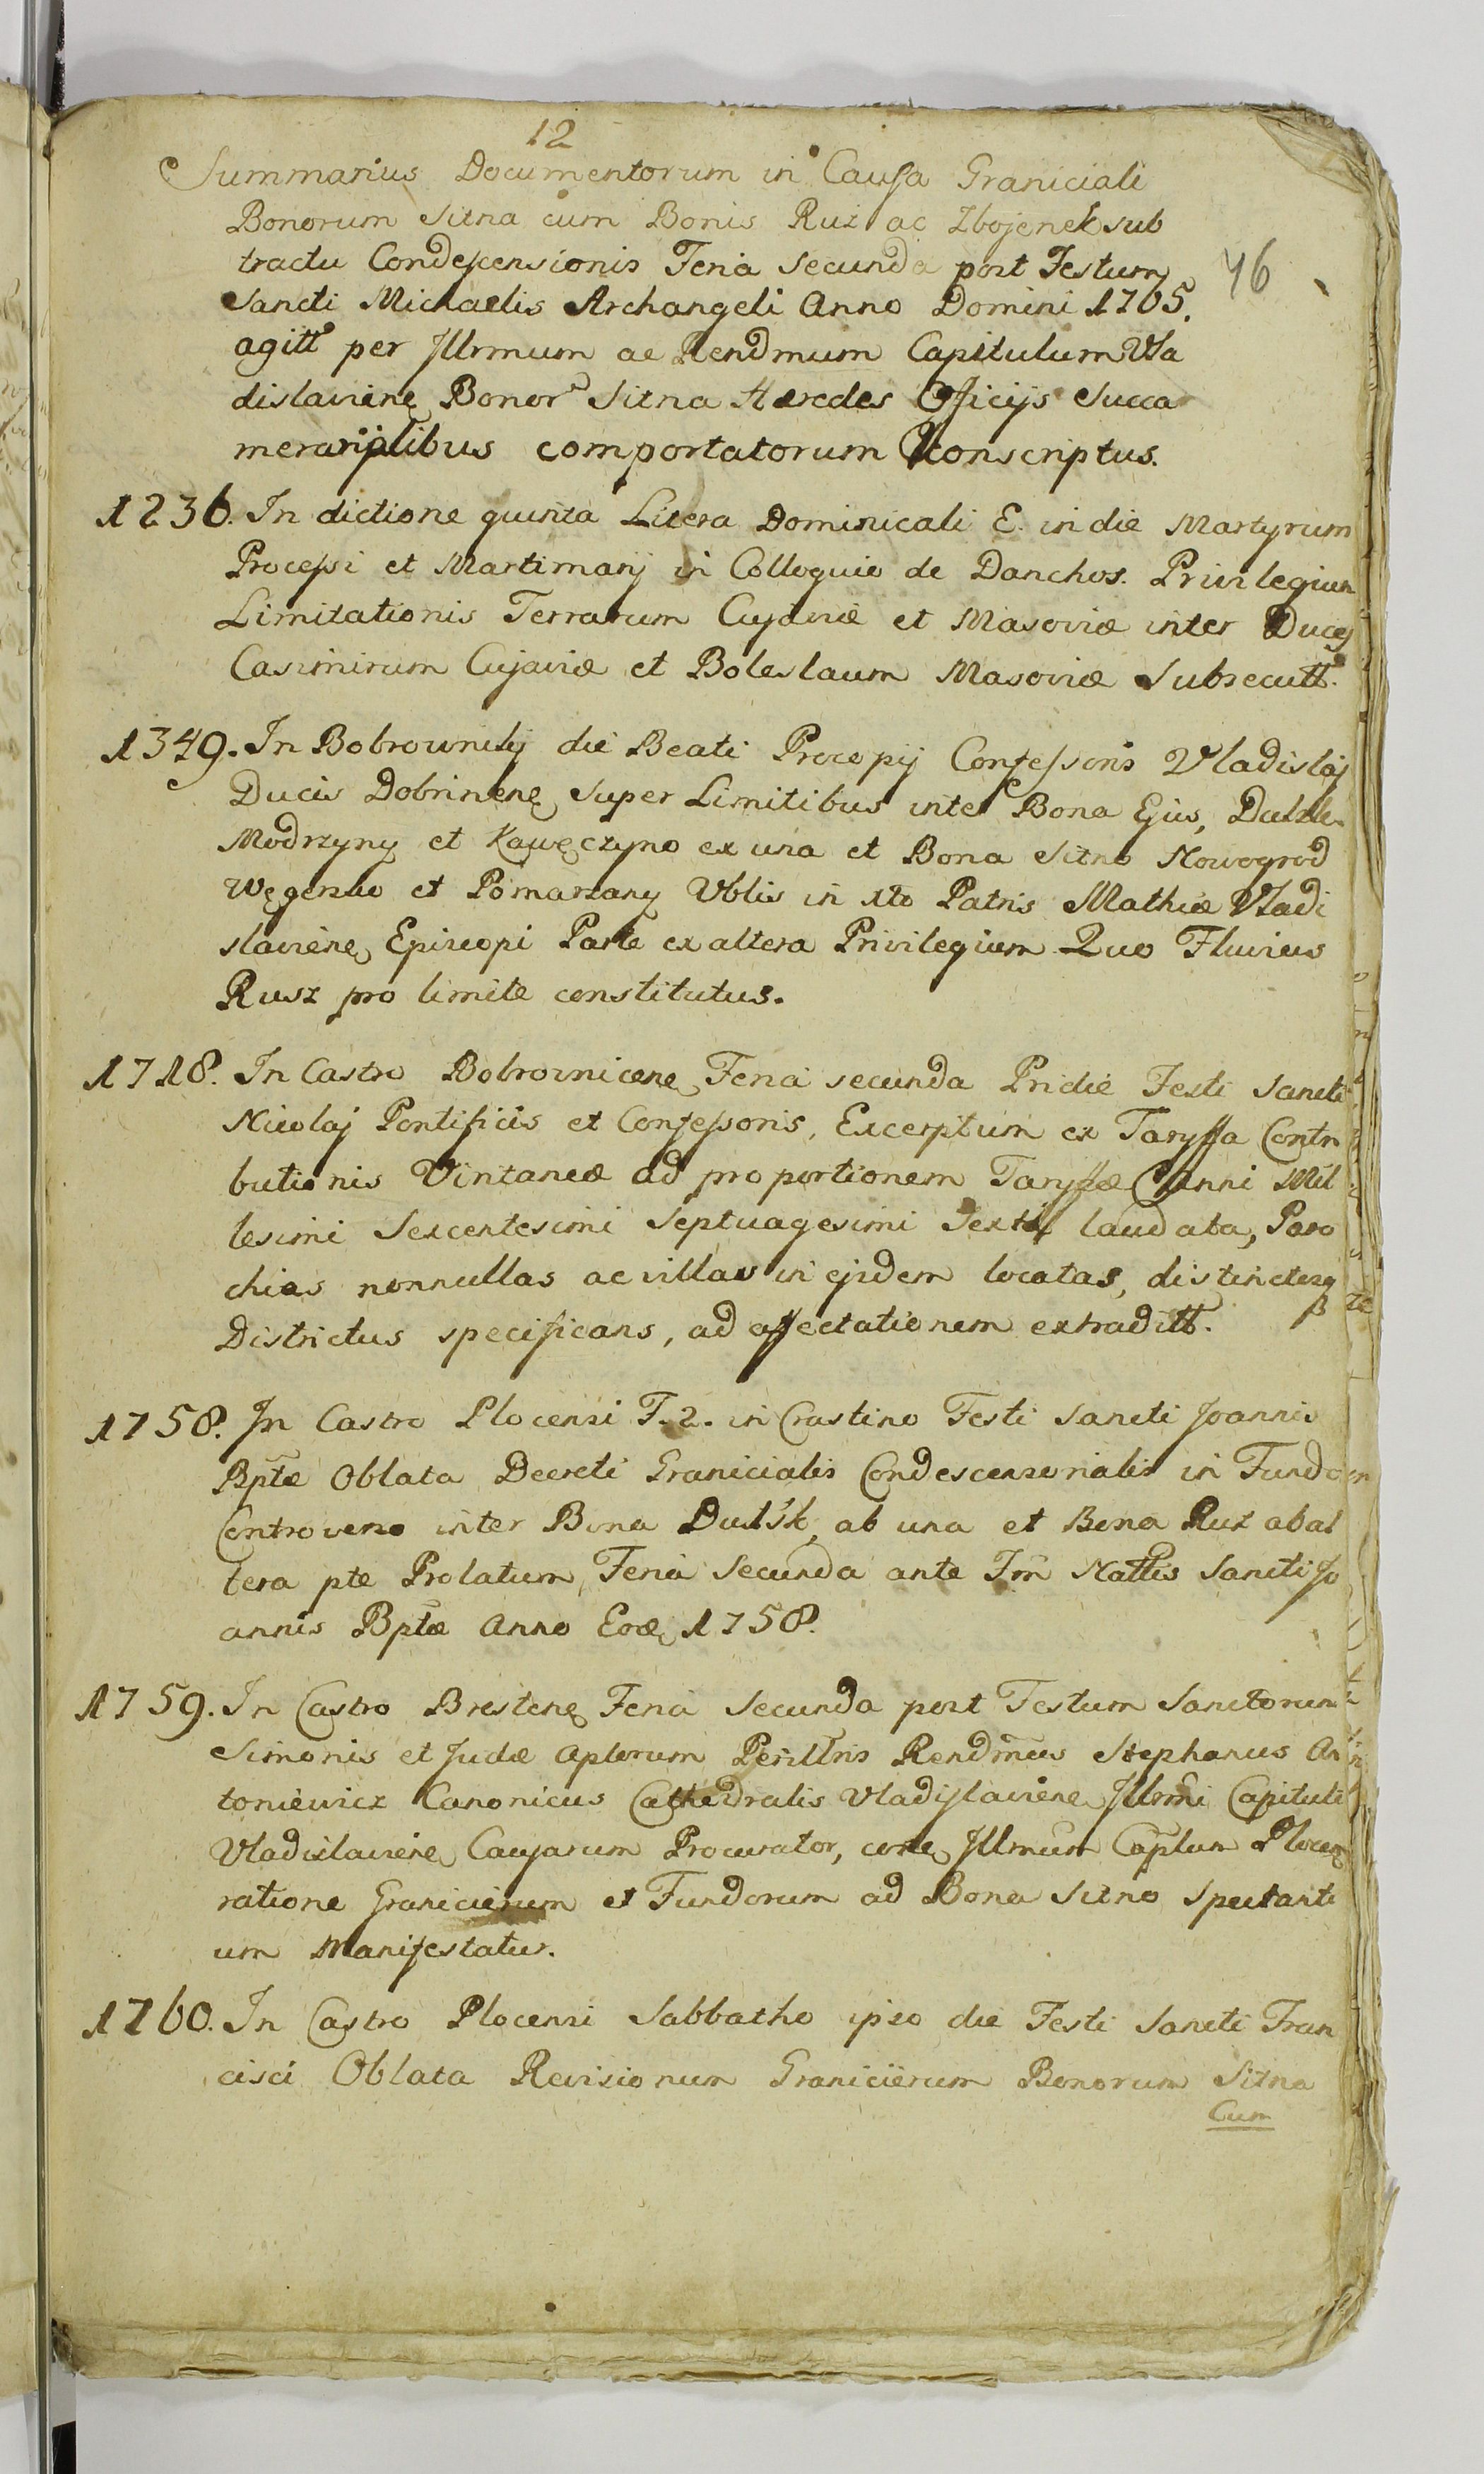 12
Summarius Documentorum in Causa Graniciali
Bonorum Sitna cum Bonis Ruż ac Zbojenek sub
tractu Condescensionis Feria secunda post Festum
46
Sancti Michaelis Archangeli Anno Domini 1765.
agitt per Jllrmum ac Rendmum Capitulum Vla
dislaviene Bonor Sitna Hæredes Officijs Succa
comportatorum Conscriptus.
1236. In dictione quinta Litera Dominicali E. in die Martyrum
Processi et Martimanij in Colloquio de Danchos. Privilegium
Limitationis Terrarum Cujaviæ et Masoviæ inter Duces
Casimirum Cujaviæ et Boleslaum Masoviæ Subsecutt.
1349. In Bobrownikj die Beati Procopij Confessoris Vladislaj
Ducis Dobrinene super Limitibus inter Bona Ejus,
Modrzyny et Kawęczyno ex una et Bona Sitno Nowogrod
Węgerzno et Pomarzany Vblis in xto Patris Mathiæ Vladi
slaviene Episcopi Parte ex altera Privilegium Quo Fluvius
Rusz pro limite constitutus.
1718. In Castro Bobrownicene Feria secunda Pridie Festi Sancti
Nicolaj Pontificis et Confessoris, Excerptum ex Taryffa Contri
butionis ad proportionem Taryffæ Anni Mil
lesimi Sexcentesimi Septuagesimi Sexti laudata, Paro
chias nonnullas ac villas in ejsdem locatas,
Districtus specificans, ad affectationem extraditt.
1758. Jn Castro Plocensi F. 2. in Crastino Festi Sancti Joannis
Bptæ Oblata Decreti Granicialis Condescensorialis in Fundo
Controverso inter Bona Dulsk, ab una et Bona Ruż ab al
tera pte Prolatum, Feria Secunda ante Fm Nattis Sancti Jo
annis Bptæ Anno Eoæ 1758.
1759. In Castro Brestene Feria Secunda post Festum Sanctorum
Simonis et Judæ Aplorum Perillris Rendmus Stephanus An
toniewicz Canonicus Cathedralis Vladislaviene Jllrmi Capituli
Vladislaviene Causarum Procurator, contra Jllmum Caplum Plocen
ratione Granicierum et Fundorum ad Bona Sitno Spectanti
um Manifestatur.
1760. In Castro Plocensi Sabbatho ipso die Festi Sancti Fran
cisci Oblata Revisionum Granicierum Bonorum Sitna
Cum